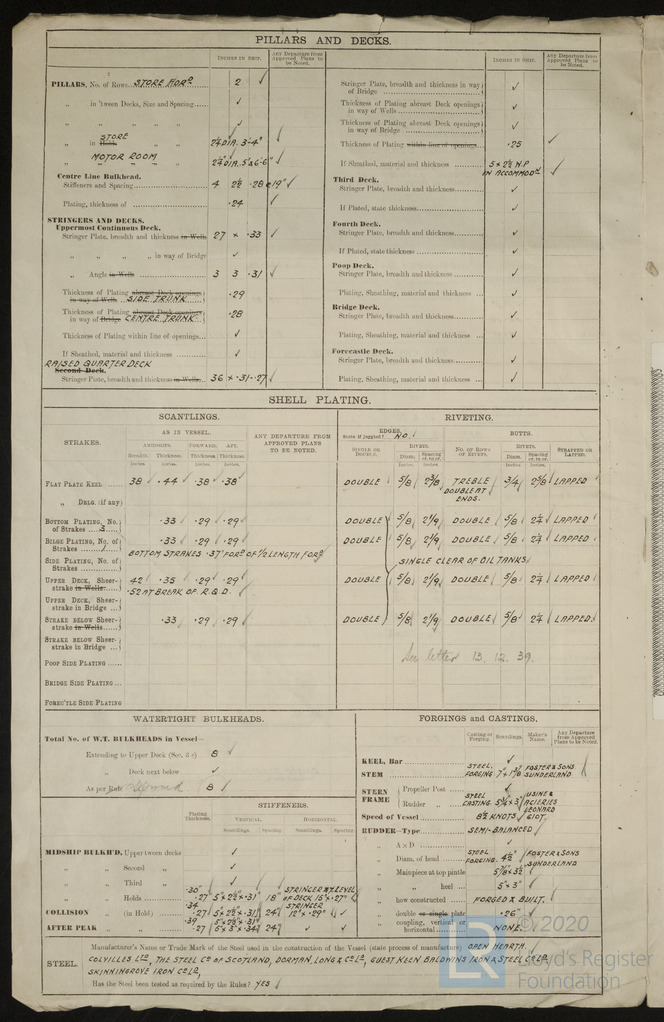 PILLARS AND DECKS.
INCHES IN SHIP. Any Departure from Approved Plans to be Noted.
PILLARS, No. of Rows STORE FORD 2 ✓
„ in 'tween Decks, Size and Spacing ✓
„ „ „ „ ✓
„ in Hold STORE „ „ 2¼ DIA. 3'-4"
„ MOTOR ROOM „ „
Centre Line Bulkhead.
Stiffeners and Spacing 4 2½ .28 @19" ✓
Plating, thickness of .24
STRINGERS AND DECKS.
Uppermost Continuous Deck.
Stringer Plate, breadth and thickness in Wells 27 × .33 ✓
„ „ „ „ in way of Bridge ✓
„ Angle in Wells 3 3 .31 ✓
Thickness of Plating abreast Deck openings in way of Wells SIDE TRUNK .29
Thickness of Plating abreast Deck openings in way of Bridge CENTRE TRUNK .28
Thickness of Plating within line of openings ✓
If Sheathed, material and thickness ✓
RAISED QUARTER DECK
Second Deck.
Stringer Plate, breadth and thickness in Wells 36 × .31 .27
INCHES IN SHIP. Any Departure from Approved Plans to be Noted.
Stringer Plate, breadth and thickness in way of Bridge ✓
Thickness of Plating abreast Deck openings in way of Wells ✓
Thickness of Plating abreast Deck openings in way of Bridge ✓
Thickness of Plating within line of openings .25 ✓
If Sheathed, material and thickness 5 × 2½ N.P IN ACCOMMODN ✓
Third Deck.
Stringer Plate, breadth and thickness ✓
If Plated, state thickness ✓
Fourth Deck.
Stringer Plate, breadth and thickness ✓
If Plated, state thickness ✓
Poop Deck.
Stringer Plate, breadth and thickness ✓
Plating, Sheathing, material and thickness ✓
Bridge Deck.
Stringer Plate, breadth and thickness ✓
Plating, Sheathing, material and thickness ✓
Forecastle Deck.
Stringer Plate, breadth and thickness ✓
Plating, Sheathing, material and thickness ✓
SHELL PLATING.
SCANTLINGS. RIVETING.
STRAKES. AS IN VESSEL. ANY DEPARTURE FROM APPROVED PLANS TO BE NOTED.
AMIDSHIPS. FORWARD. AFT.
Breadth. Thickness. Thickness. Thickness.
Inches. Inches. Inches. Inches.
EDGES. State if joggled? NO. BUTTS.
SINGLE OR DOUBLE. RIVETS. Diam. Spacing cr. to cr. NO. OF ROWS OF RIVETS. RIVETS. Diam. Spacing cr. to cr. STRAPPED OR LAPPED.
FLAT PLATE KEEL 38 .44 .38 .38 DOUBLE 5/8 2⅜ TREBLE DOUBLE AT ENDS. 3/4 2⅝ LAPPED
„ DBLG. (if any)
BOTTOM PLATING, No. of Strakes 3 .33 .29 .29 DOUBLE 5/8 DOUBLE 5/8 2¼ LAPPED
BILGE PLATING, No. of Strakes 1 .33 .29 .29 DOUBLE 5/8 DOUBLE 5/8 2¼ LAPPED
BOTTOM STRAKES .37 FORD OF ½ LENGTH FORD
SIDE PLATING, No. of Strakes SINGLE CLEAR OF OIL TANKS
UPPER DECK, Sheerstrake in Wells 42 .35 .29 .29 DOUBLE 5/8 DOUBLE 5/8 2¼ LAPPED
.52 AT BREAK OF R.Q.D.
UPPER DECK, Sheerstrake in Bridge
STRAKE BELOW Sheerstrake in Wells .33 .29 .29 DOUBLE 5/8 DOUBLE 5/8 2¼ LAPPED
STRAKE BELOW Sheerstrake in Bridge
See letter 13.12.39.
POOP SIDE PLATING
BRIDGE SIDE PLATING
FORECTLE SIDE PLATING
WATERTIGHT BULKHEADS.
Total No. of W.T. BULKHEADS in Vessel—
Extending to Upper Deck 8 ✓
„ Deck next below ✓
As per Rule 8 ✓
STIFFENERS.
Plating Thickness. VERTICAL. HORIZONTAL.
Scantlings. Spacing Scantlings. Spacing
MIDSHIP BULKH'D, Upper tween decks ✓
„ „ Second „ ✓
„ „ Third „ ✓
„ „ Holds .30 .27 5 × 2½ × .31 18" STRINGER AT LEVEL OF DECK 15" × .27"
COLLISION „ (in Hold) .34 .27 5 × 2½ × .31 24" STRINGER 12" × .29" ✓
AFTER PEAK „ „ .39 .27 5 × 3 × .34 24" ✓
FORGINGS and CASTINGS.
Casting or Forging. Scantlings. Maker's Name. Any Departure from Approved Plans to be Noted.
KEEL, Bar ✓
STEM STEEL FORGING 7" × 1⅜ FOSTER & SONS SUNDERLAND
STERN FRAME Propeller Post ✓
Rudder „ STEEL CASTING USINE & ACIERIES LEONARD GIOT.
Speed of Vessel 8½ KNOTS
RUDDER—Type SEMI-BALANCED
„ A × D ✓
„ Diam. of head STEEL FORGING. 4½ FOSTER & SONS SUNDERLAND
„ Mainpiece at top pintle
„ „ heel 5" × 3"
„ how constructed FORGED & BUILT.
„ double or single plate .26"
„ coupling, vertical or horizontal NONE.
STEEL. Manufacturer's Name or Trade Mark of the Steel used in the construction of the Vessel (state process of manufacture) OPEN HEARTH.
COLVILLES LTD, THE STEEL CO OF SCOTLAND, DORMAN, LONG & CO LD, GUEST KEEN BALDWINS IRON & STEEL CO LD.
SKINNINGROVE IRON CO LD,
Has the Steel been tested as required by the Rules? YES
© 2020
LR Lloyd's Register
Foundation